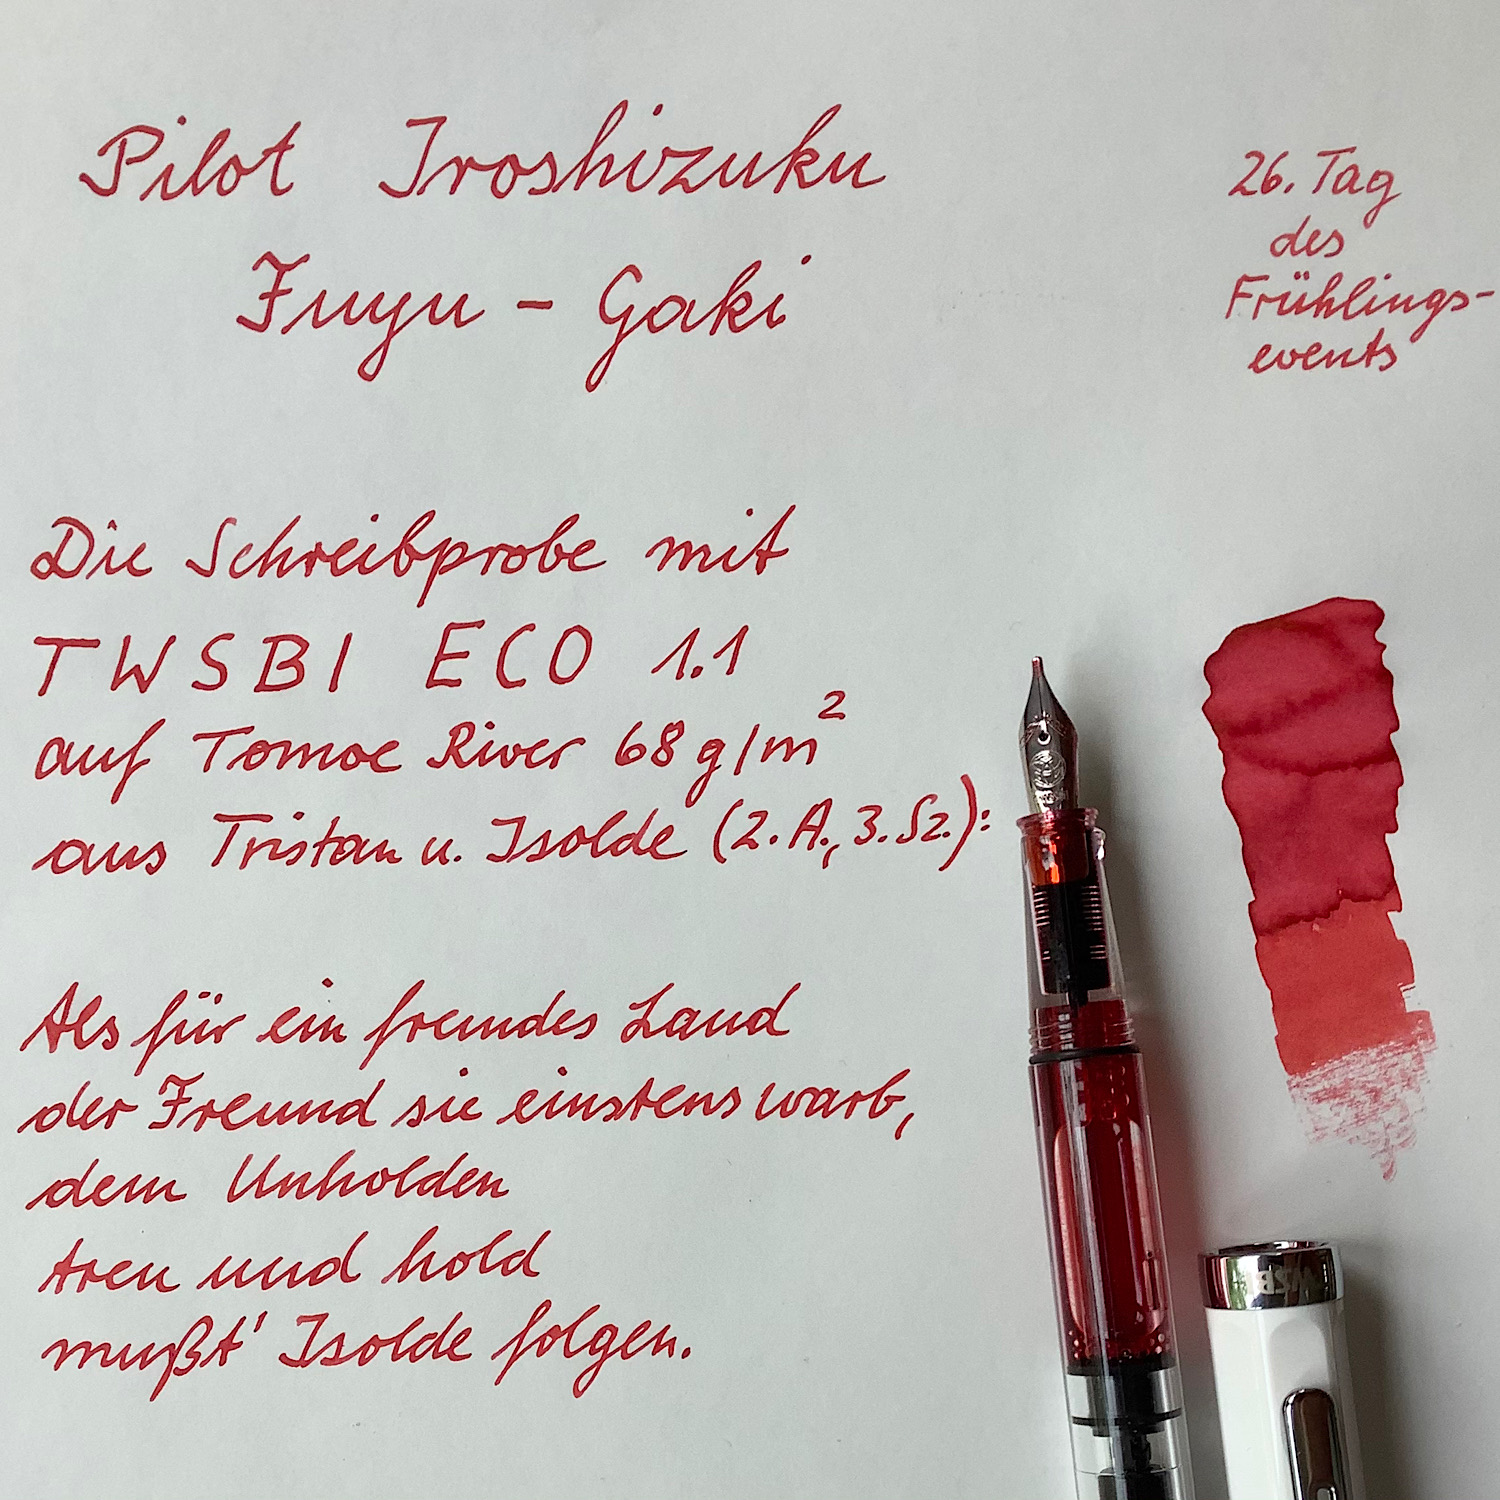 Pilot Iroshizuku
Fuyu - Gaki
26. Tag
des
Frühlings-
events
Die Schreibprobe mit
TWSBI ECO 1.1
auf Tomoe River 68 g/m²
aus Tristan u. Isolde (2. A., 3. Sz.):
Als für ein fremdes Land
der Freund sie einstens warb,
dem Unholden
treu und hold
mußt' Isolde folgen.